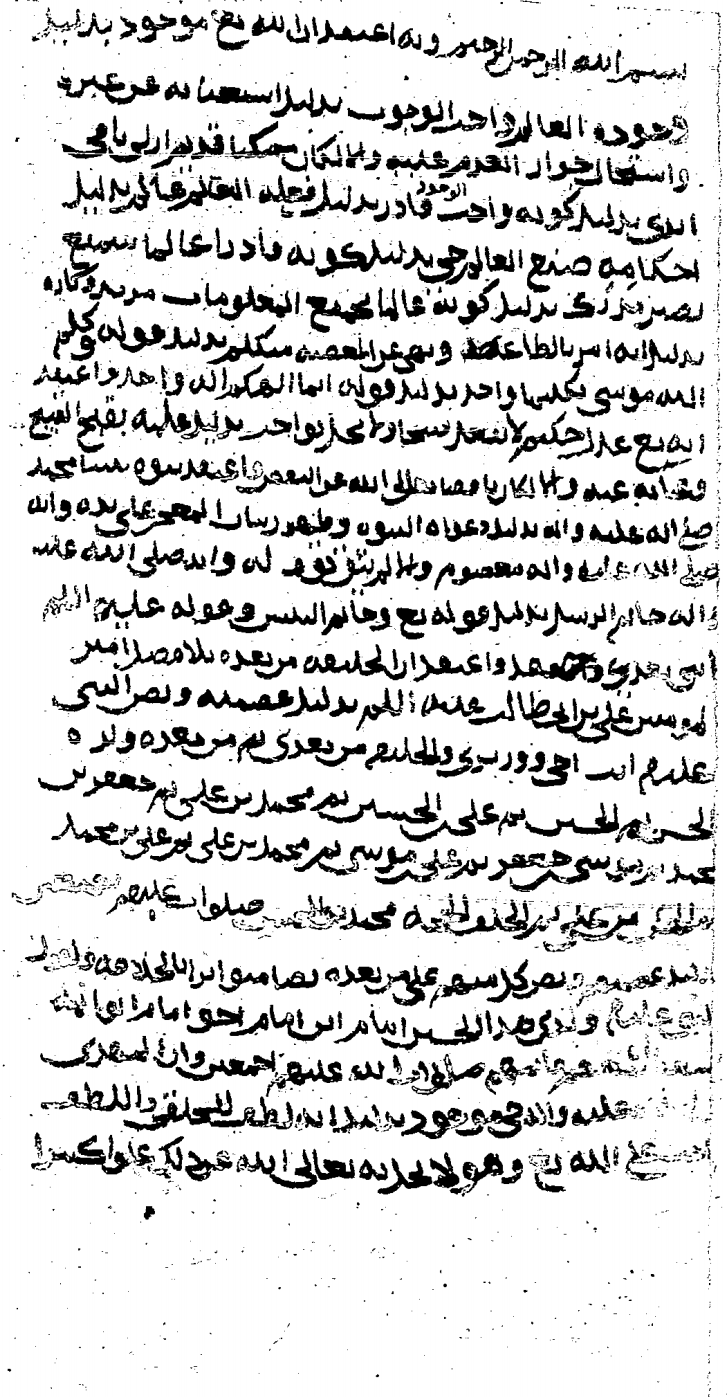 بسم الله الرحمن الرحيم وبه اعتقد ان الله تع موجود بدليل
وجوده العالم واجب الوجوب بدليل استغنائه عن غيره
واستحالة جواز العدم عليه والا لكان ممكنا قديم ازلي باقي
ابدي بدليل كونه واجب الوجود قادر بدليل فعله العالم عالم بدليل
احكامه صنع العالم حي بدليل كونه قادرا عالما سميع
بصير مدرك بدليل كونه عالما بجميع المعلومات مريد وكاره
بدليل انه امر بالطاعة ونهى عن المعصية متكلم بدليل قوله وكلم
الله موسى تكليما واحد بدليل قوله انما الهكم اله واحد واعتقد
انه تع عدل حكيم لا يفعل بواجب بدليل علمه بقبح القبيح
وغنائه عنه والا لكان ناقصا تعالى الله عن النقص واعتقد نبوة نبينا محمد
صلى الله عليه واله بدليل دعواه النبوة وظهور المعجز على يده وانه
صلى الله عليه واله معصوم والا لم يثق له وانه صلى الله عليه
واله خاتم الرسل بدليل قوله تع وخاتم النبيين وقوله عليه اللم
بعدي واعتقد ان الخليفة من بعده بلا فصل امير
المومنين علي بن ابي طالب عليه اللم بدليل عصمته ونص النبي
عليهم انت اخي ووزيري والخليفة من بعدي ثم من بعده ولده
الحسن ثم الحسين ثم علي بن الحسين ثم محمد بن علي ثم جعفر بن
محمد ثم موسى بن جعفر ثم علي بن موسى ثم محمد بن علي ثم علي بن محمد
ثم الحسن بن علي ثم الخلف الحجة محمد بن الحسن صلوات عليهم
بدليل عصمتهم ونص كل منهم على من بعده بالخلافة
ولدي هذا الحسين امام ابن امام اخو امام ابو ائمة
تسعة صلوات الله عليهم اجمعين وان المهدي
عليه واله حي موجود بدليل انه لطف للخلق واللطف
على الله تع وهو لا يخل به تعالى الله عن ذلك علوا كبيرا